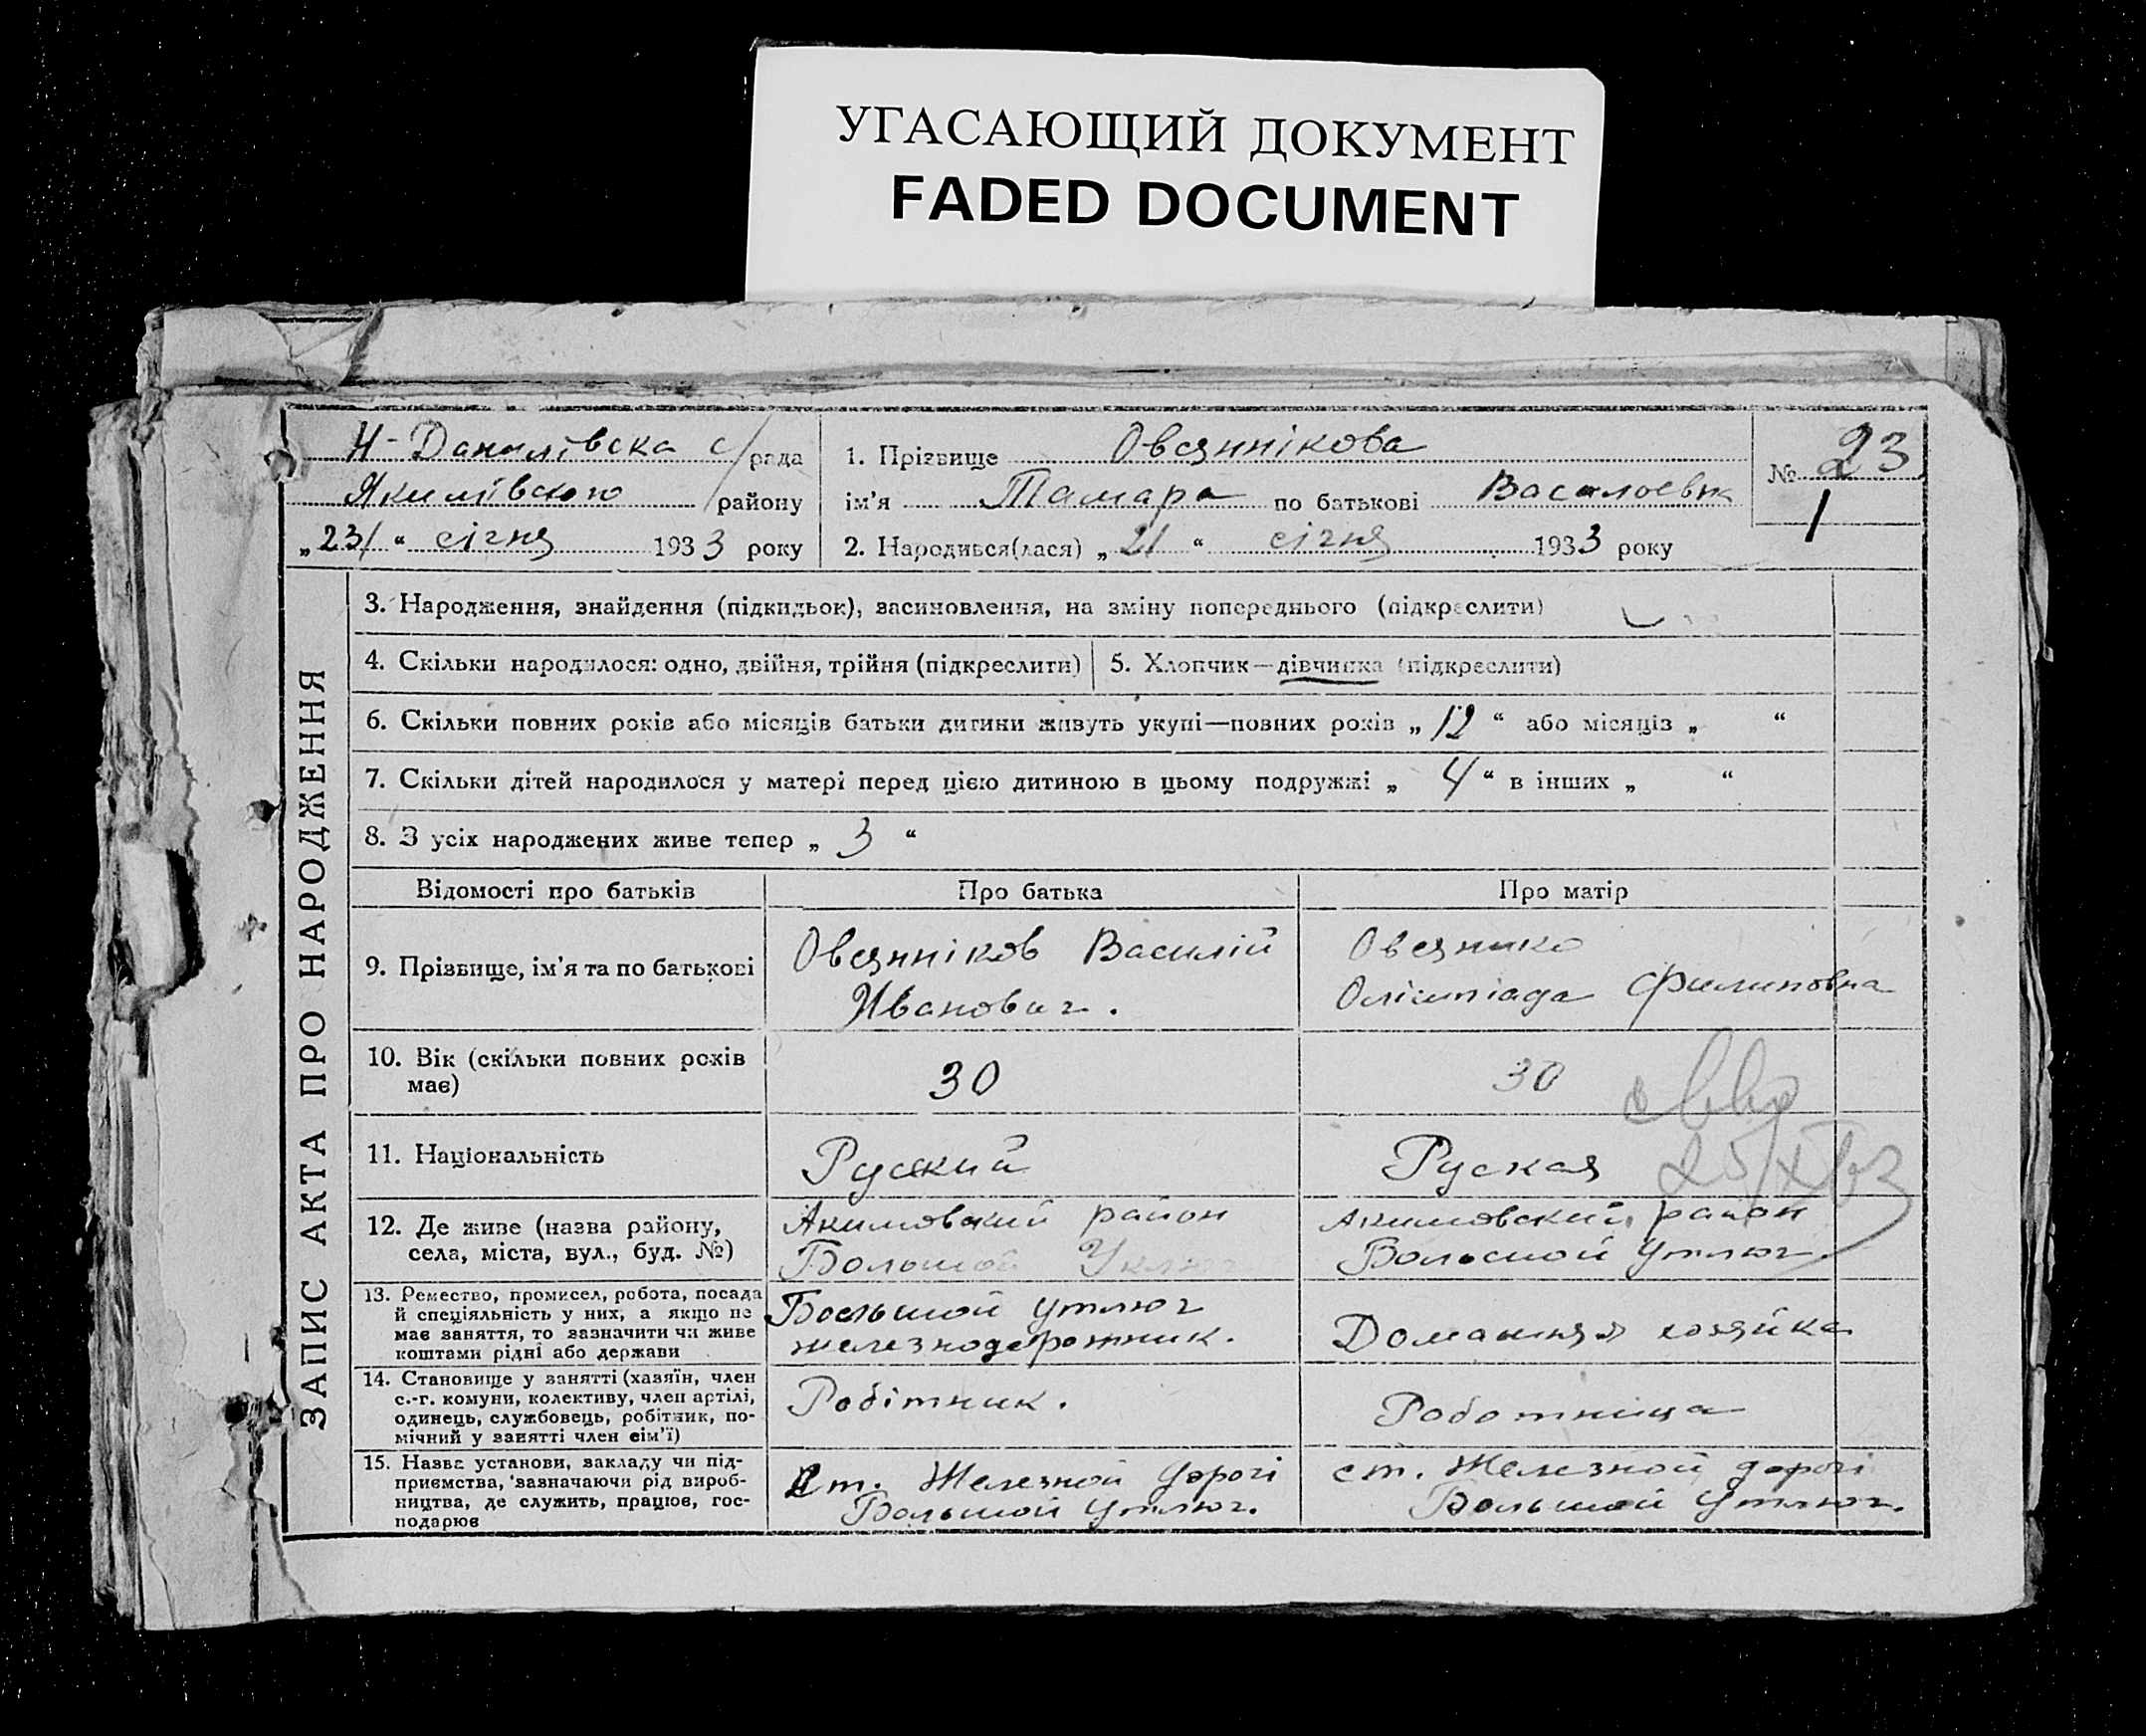 УГАСАЮЩИЙ ДОКУМЕНТ
FADED DOCUMENT
Н-Данилівска с/рада
Якимівского району
„23/“ січня 1933 року
1. Прізвище Овсяннікова
ім’я Тамара по батькові Васильевна
2. Народився(лася) „21“ січня 1933 року
№ 23
1
ЗАПИС АКТА ПРО НАРОДЖЕННЯ
3. Народження, знайдення (підкидьок), засиновлення, на зміну попереднього (підкреслити)
4. Скільки народилося: одно, двійня, трійня (підкреслити)
5. Хлопчик—дівчинка (підкреслити)
6. Скільки повних років або місяців батьки дитини живуть укупі—повних років „12“ або місяців „ “
7. Скільки дітей народилося у матері перед цією дитиною в цьому подружжі „4“ в інших „ “
8. З усіх народжених живе тепер „3“
Відомості про батьків
Про батька
Про матір
9. Прізвище, ім’я та по батькові
Овсянніков Василій
Иванович.
Овсянико
Олімпіада Филиповна
10. Вік (скільки повних років
має)
30
30
11. Національність
Руский
Руская
12. Де живе (назва району,
села, міста, вул., буд. №)
Акимовский район
Большой Утлюг
Акимовский район
Большой Утлюг
13. Ремество, промисел, робота, посада
й спеціяльність у них, а якщо не
має заняття, то зазначити чи живе
коштами рідні або держави
Большой Утлюг
железнодорожник.
Домашняя хозяйка
14. Становище у занятті (хазяїн, член
с.-г. комуни, колективу, член артілі,
одинець, службовець, робітник, по-
мічний у занятті член сім’ї)
Робітник.
Работница
15. Назва установи, закладу чи під-
приємства, зазначаючи рід вироб-
ництва, де служить, працює, гос-
подарює
Ст. Железной дорогі
Большой Утлюг.
ст. Железной дорогі
Большой Утлюг.